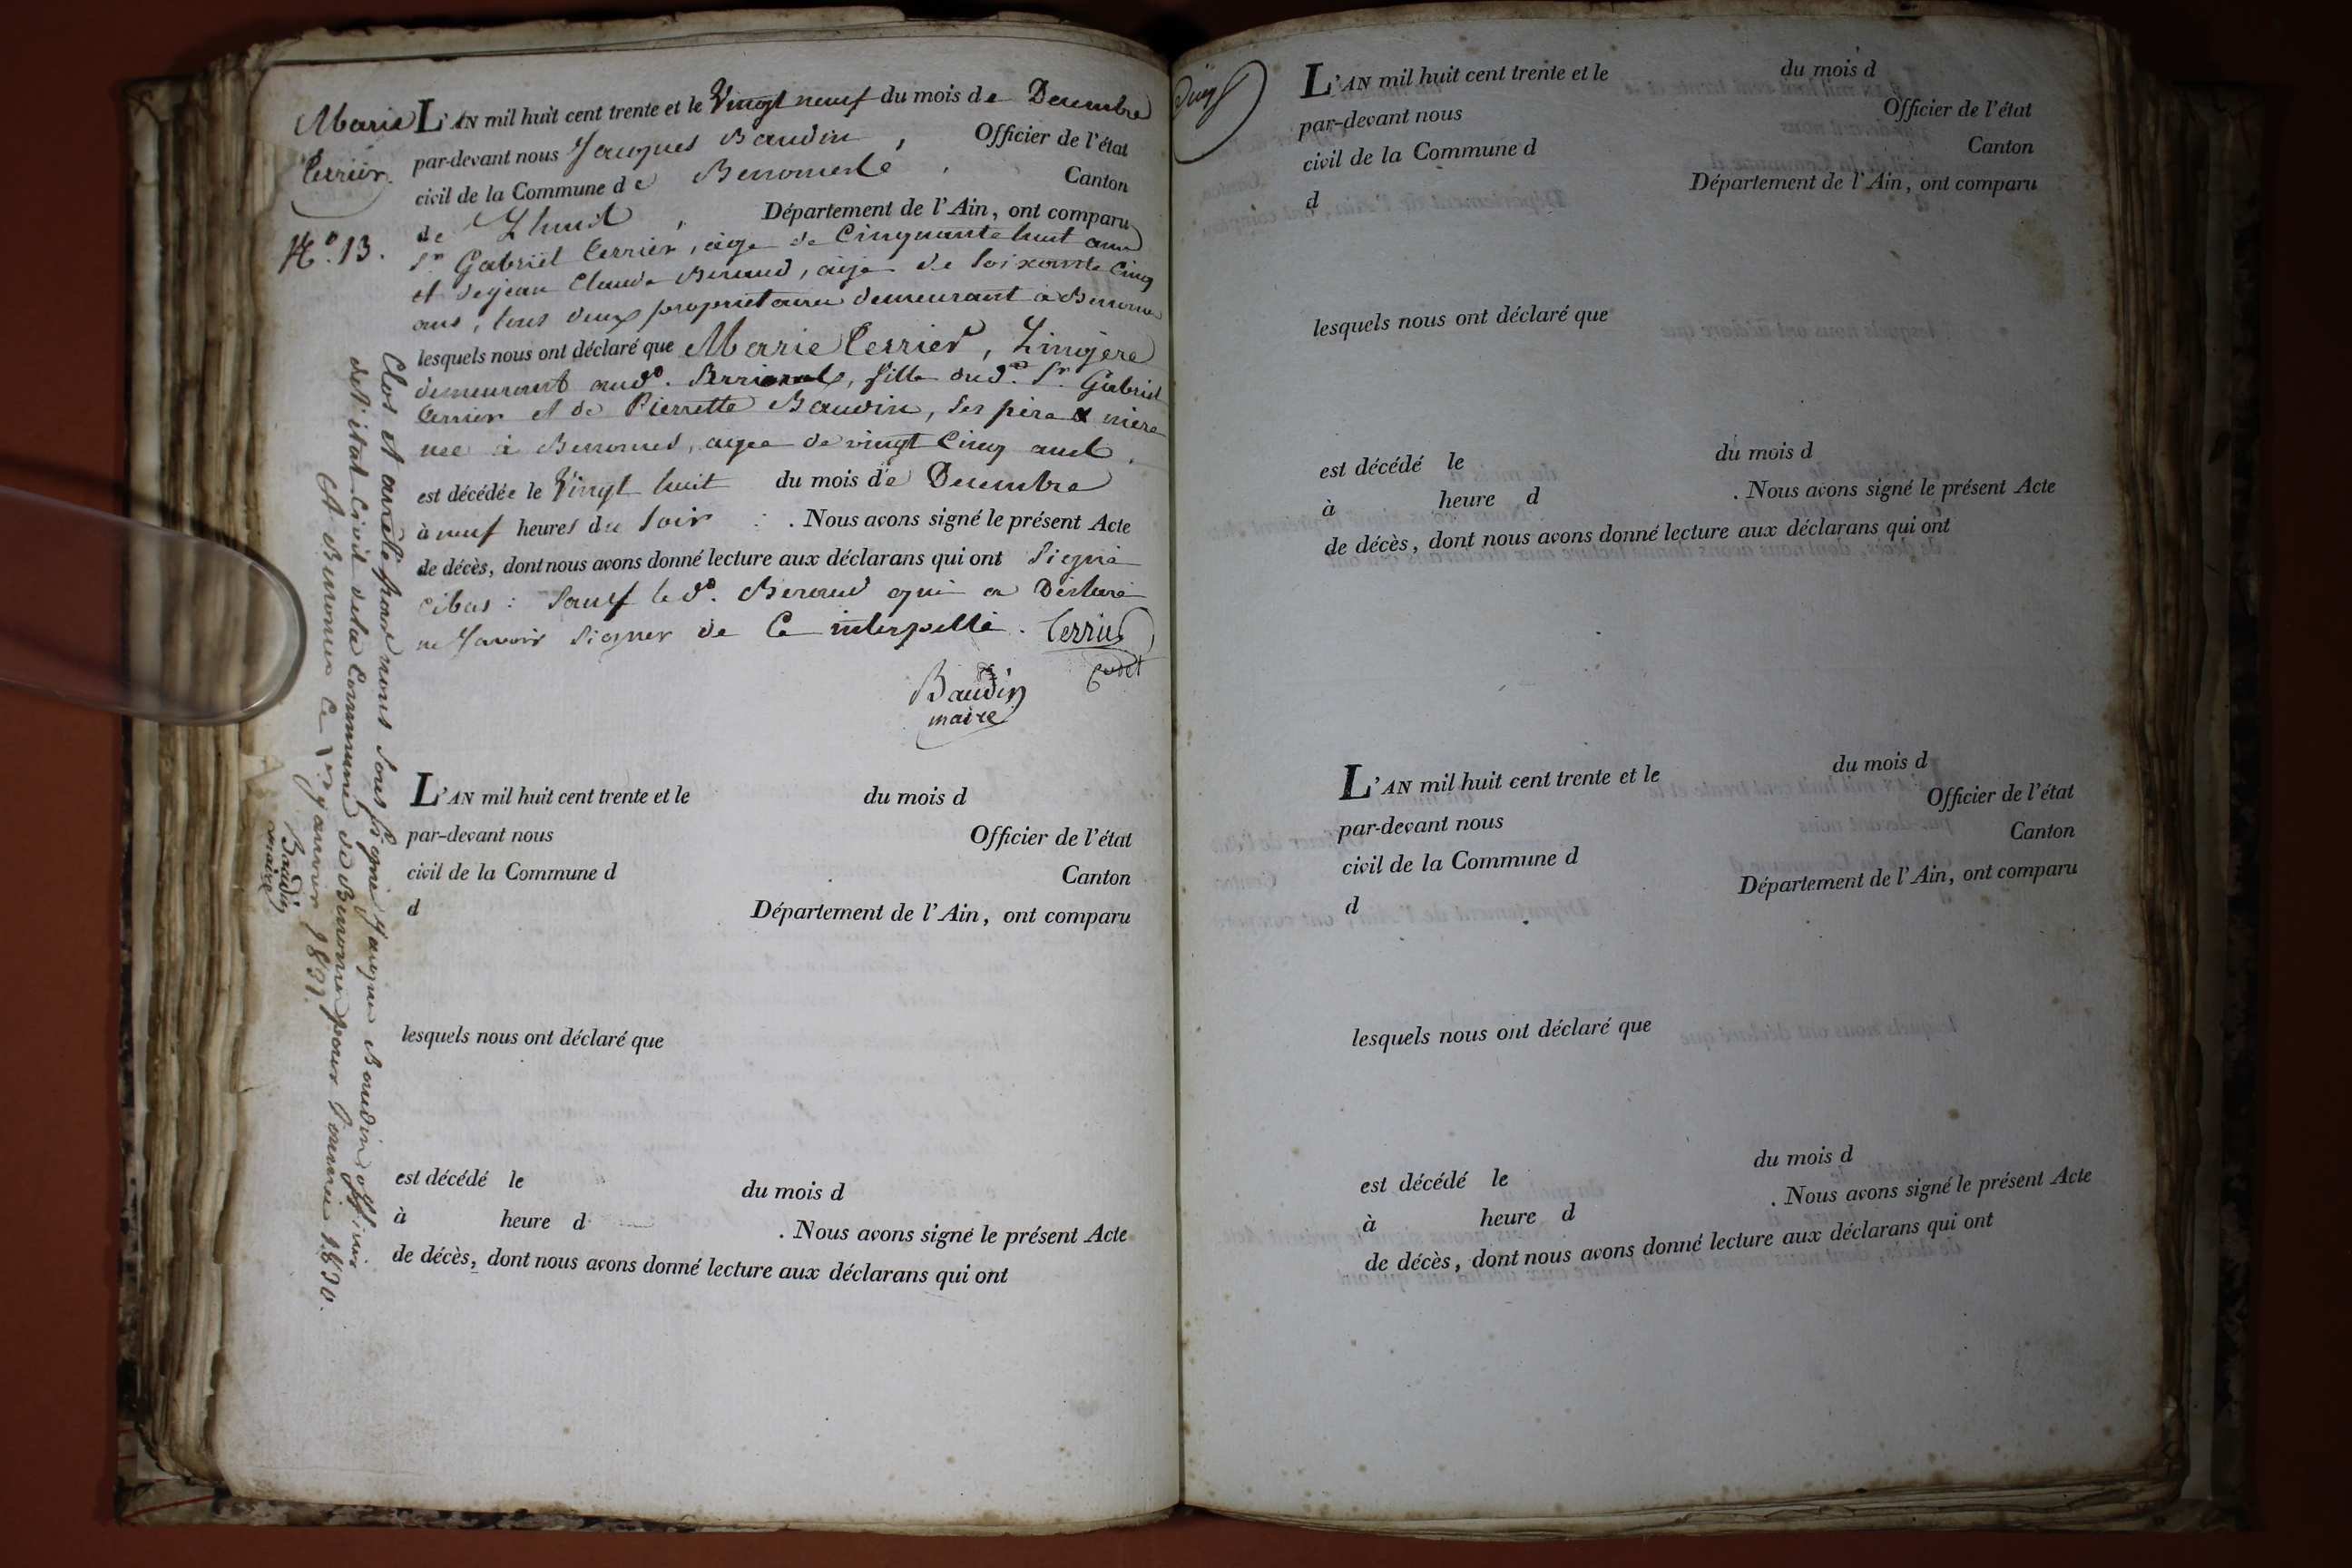 Marie
Terrier.
N.º 13.
L'AN mil huit cent trente et le Vingt neuf du mois de Decembre
par-devant nous Jacques Baudin, Officier de l'état
civil de la Commune de Canton
de Lhuis, Département de l'Ain, ont comparu
Sr Gabriel Terrier, agé de Cinquante huit ans
et Claude Beraud, agé de Soixante Cinq
ans, tous deux proprietaires demeurant à
lesquels nous ont déclaré que Marie Terrier, Lingère
demeurant aud., fille dud. Sr. Gabriel
Terrier et de Pierrette Baudin, ses père & mère
née à, agée de vingt Cinq ans
est décédée le Vingt huit du mois de Decembre
à neuf heures du Soir. Nous avons signé le présent Acte
de décès, dont nous avons donné lecture aux déclarans qui ont Signé
cibas: Sauf led. Beraud qui a Déclaré
ne Savoir Signer de Ce interpellé. Terrier
Cadet
Baudin
maire
Clos et arrêté par nous Sous Signé Jacques Baudin officier
de l'état Civil de la Commune de pour l'année 1830.
A Ce 1er janvier 1831.
Baudin
maire
L'AN mil huit cent trente et le du mois d
par-devant nous Officier de l'état
civil de la Commune d Canton
d Département de l'Ain, ont comparu
lesquels nous ont déclaré que
est décédé le du mois d
à heure d . Nous avons signé le présent Acte
de décès, dont nous avons donné lecture aux déclarans qui ont
L'AN mil huit cent trente et le du mois d
par-devant nous Officier de l'état
civil de la Commune d Canton
d Département de l'Ain, ont comparu
lesquels nous ont déclaré que
est décédé le du mois d
à heure d . Nous avons signé le présent Acte
de décès, dont nous avons donné lecture aux déclarans qui ont
L'AN mil huit cent trente et le du mois d
par-devant nous Officier de l'état
civil de la Commune d Canton
d Département de l'Ain, ont comparu
lesquels nous ont déclaré que
est décédé le du mois d
à heure d . Nous avons signé le présent Acte
de décès, dont nous avons donné lecture aux déclarans qui ont